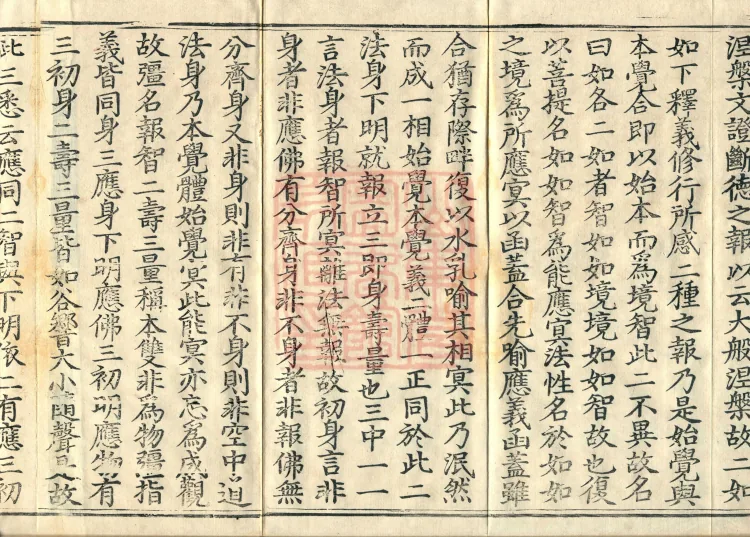 涅槃文證斷德之報以云大般涅槃故二如
如下釋義修行所感二種之報乃是始覺與
本覺合即以始本而爲境智此二不異故名
曰如各二如者智如如境境如如智故也復
以菩提名如如智爲能應冥法性名於如如
之境爲所應冥以函蓋合先喻應義函蓋雖
合猶存際畔復以水乳喻其相冥此乃泯然
而成一相始覺本覺義二體一正同於此二
法身下明就報立三即身壽量也三中一一
言法身者報智所冥離法無報故初身言非
身者非應佛有分齊身非不身者非報佛無
分齊身又非身則非有非不身則非空中迫
法身乃本覺體始覺冥此能冥亦忘爲成觀
故彊名報智二壽三量稱本雙非爲物彊指
義皆同身三應身下明應佛三初明應物有
三初身二壽三量皆如谷響大小隨聲故
此三悉云應同二智與下明依二有應三初